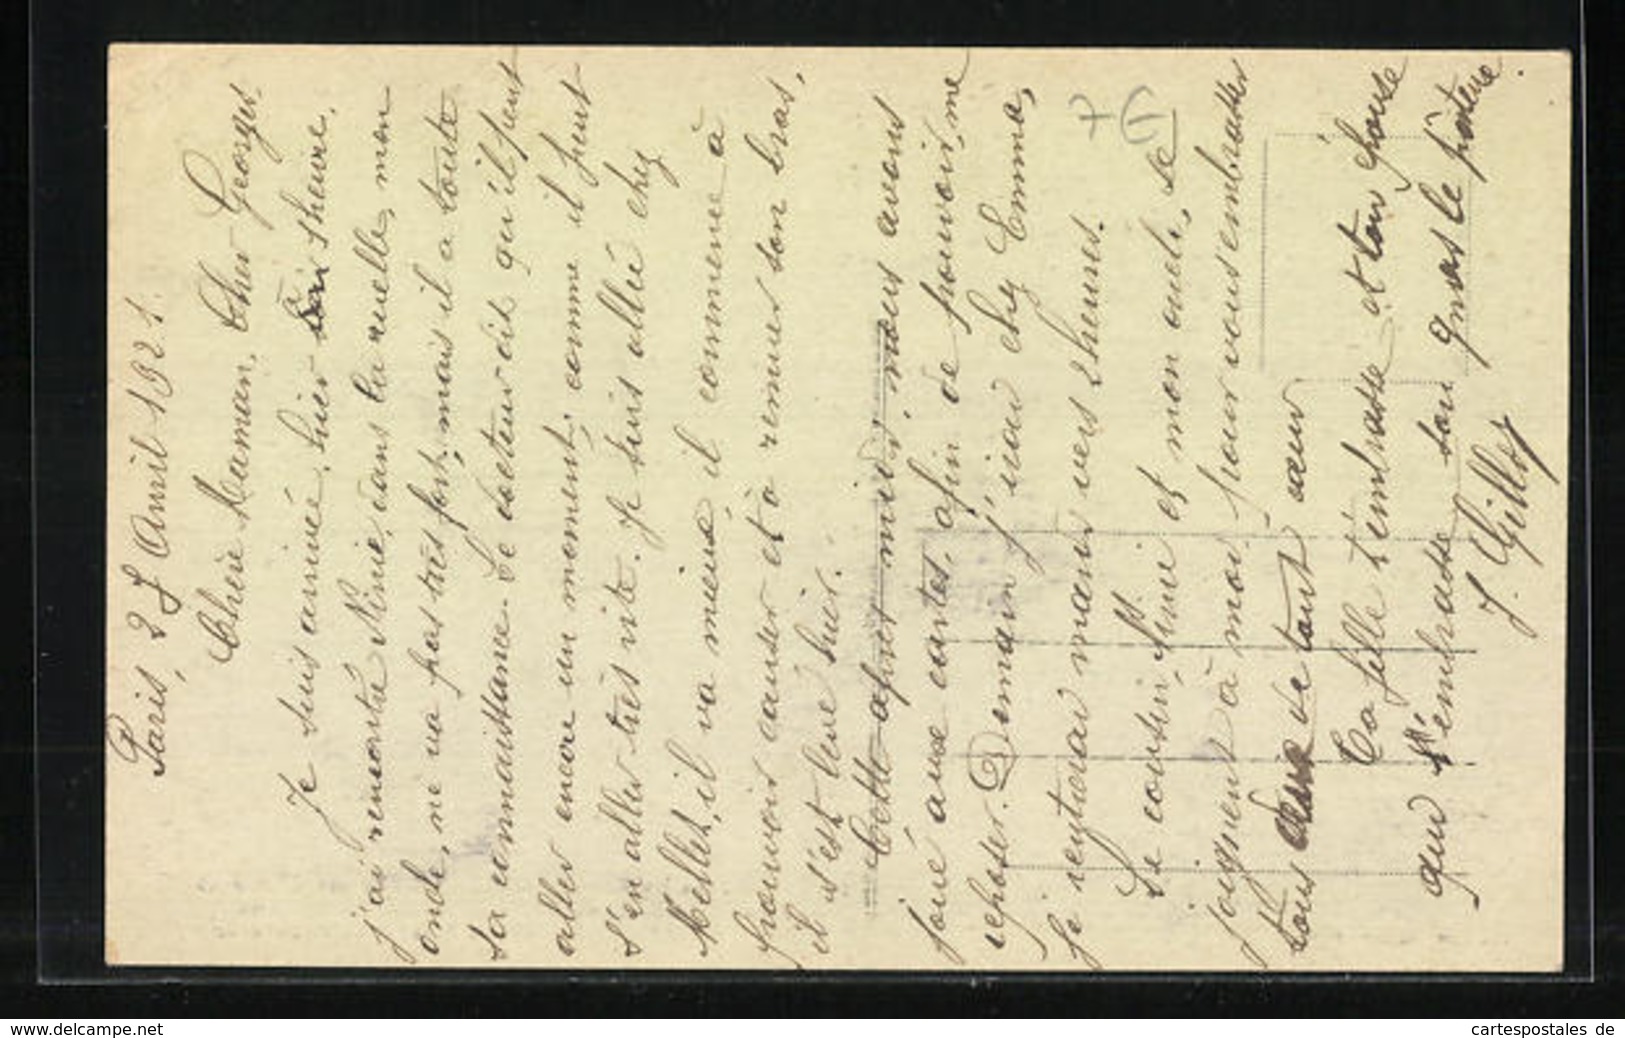 Paris, 27 Avril 1921.
Chère Maman, Cher Georges.
Je suis arrivée, hier à 7 heure.
j'ai rencontré Ninie, dans la ruelle, mon
oncle, ne va pas très fort, mais il a toute
sa connaissance. Le docteur dit qu'il peut
aller encore un moment, comme il peut
s'en aller très vite. Je suis allée chez
Millet, il va mieux, il commence à
pouvoir causer et à remuer son bras,
il s'est levé hier.
Cette après midi, nous avons
joué aux cartes, afin de pouvoir me
reposer. Demain j'irai chez Emma,
je rentrerai vers 2 heures.
Le cousin, Ninie et mon oncle, se
joignent à moi, pour vous embrasser
tous de tout cœur
Ta fille t'embrasse et ton épouse
qui t'embrasse son gros le pôteue.
J. Gillot
www.delcampe.net
cartespostales de